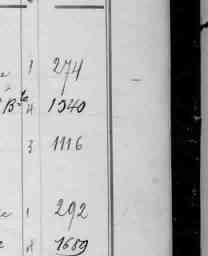 1 274
Bte 4 1340
3 1116
1 292
4 1689